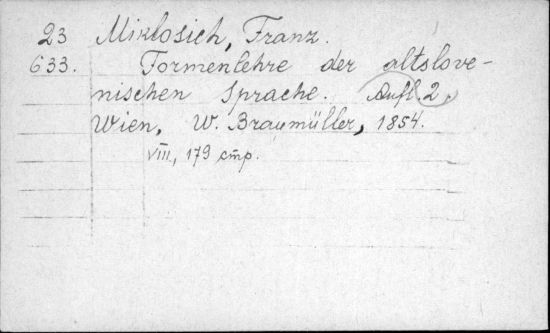 23 Miklosich, Franz.
633. Formenlehre der altslove-
nischen Sprache. Aufl. 2.
Wien, W. Braumüller, 1854.
VIII, 179 стр.